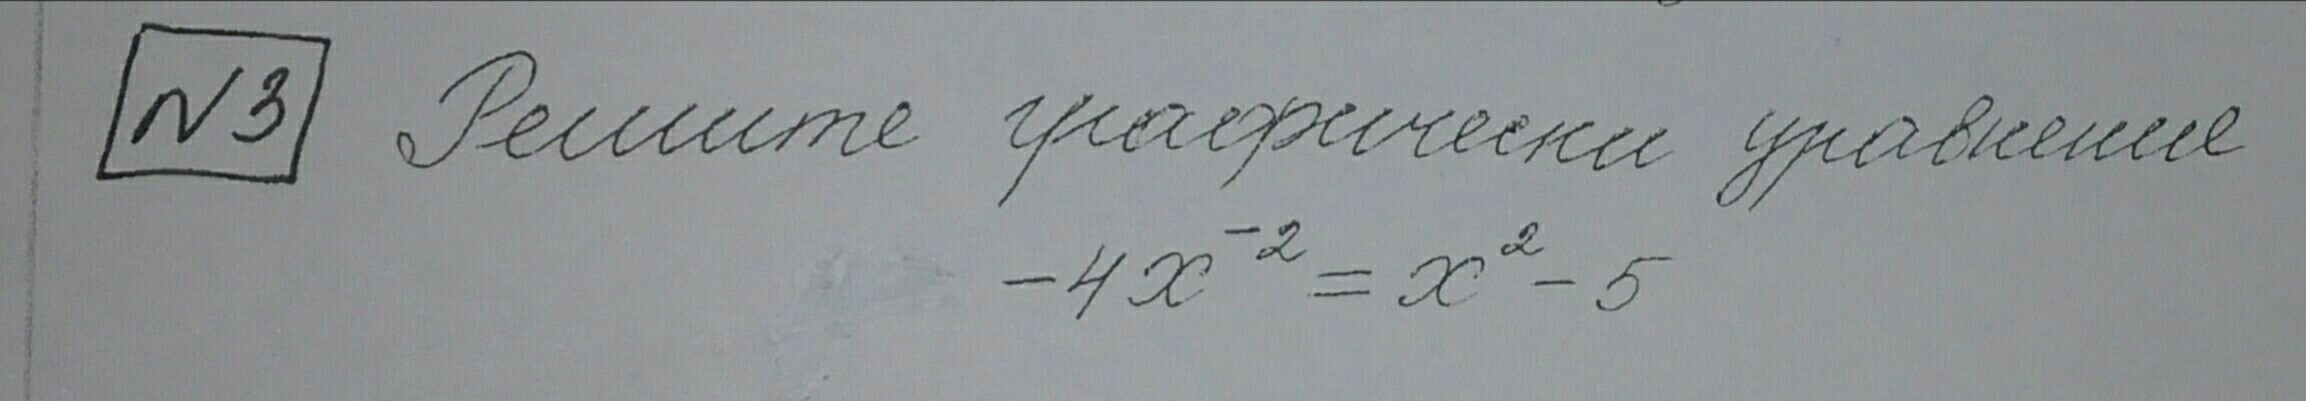 N3 Решите графически уравнение
-4x⁻² = x² - 5